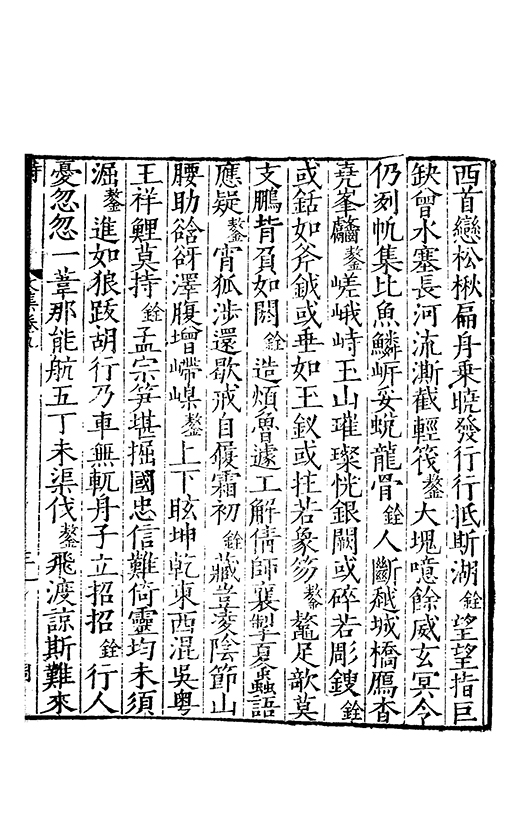 西首戀松楸扁舟乗曉發行行泜斯湖銓望望指巨
缺曾水塞長河流澌截輕筏鏊大塊噫餘威玄冥令
仍刻帆集比魚鱗㟁妥蜿龍骨銓人斷越城橋鴈杳
堯峯巚鏊嵯峨峙玉山璀璨恍銀闕或碎若彫鎪銓
或銛如斧鉞或垂如玉釵或拄若象笏鏊鼇足歆莫
支鵬背負如閼銓造煩魯㨿工解倩師襄掣夏蟲語
應疑鏊宵狐渉還歇戒目履霜初銓藏豈凌隂節山
腰助谽谺澤腹增㠔嵲鏊上下眩坤乾東西混吳粤
王祥鯉莫持銓孟宗笋堪掘國忠信難倚靈均未須
淈鏊進如狼跋胡行乃車無軏舟子立招招銓行人
憂忽忽一葦那能航五丁未渠伐鏊飛渡諒斯難來